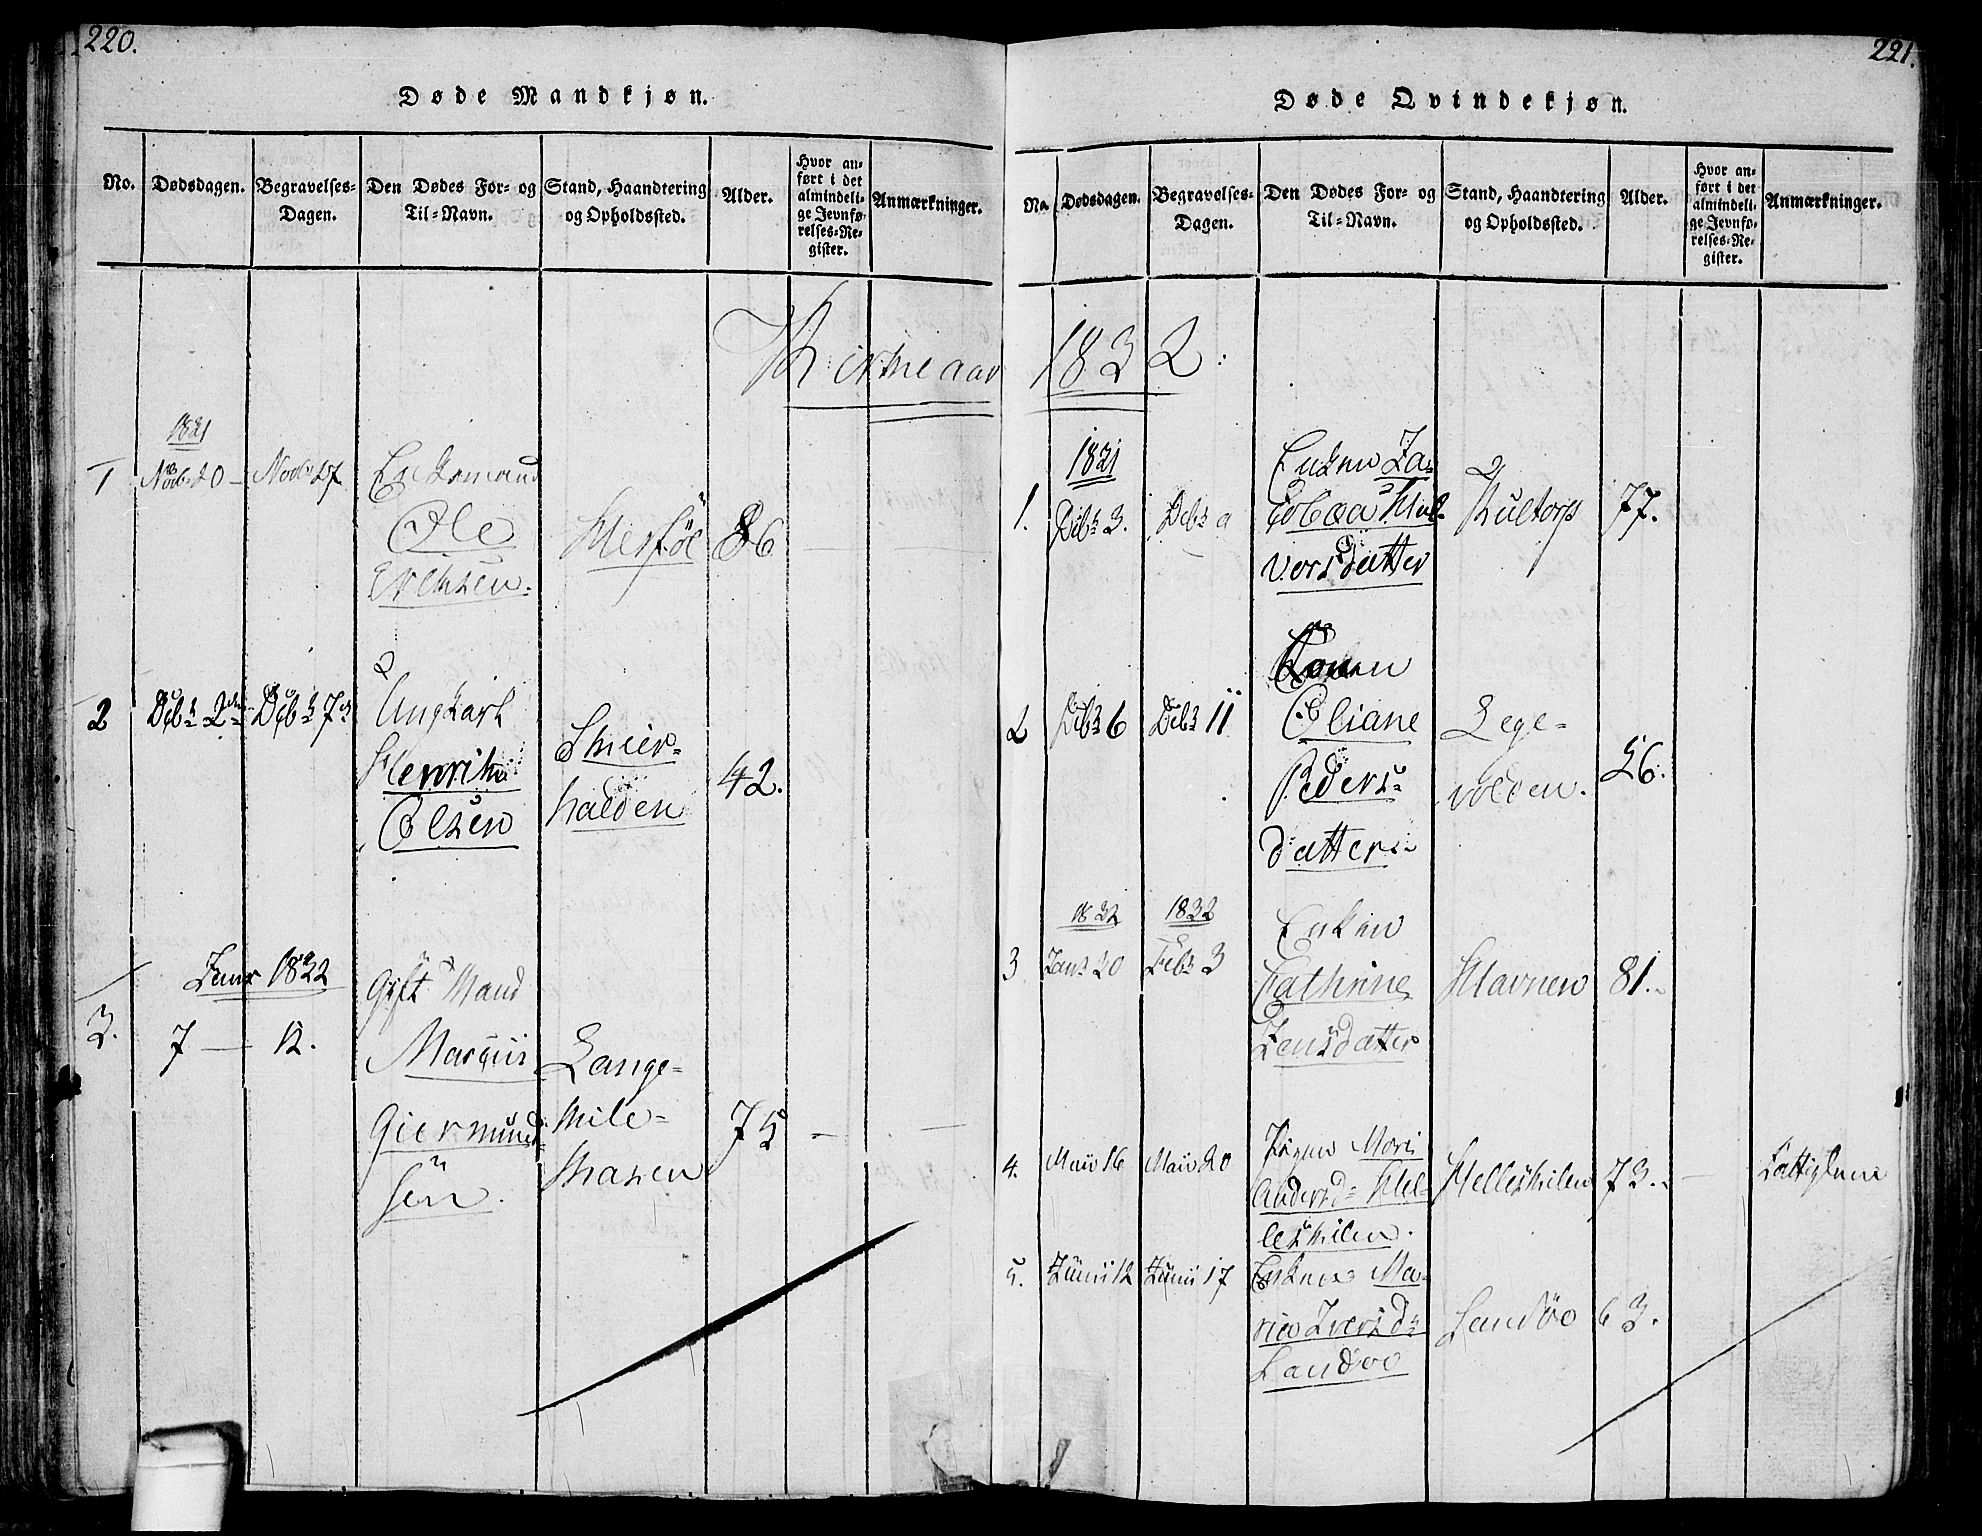 220.
Døde Mandkjøn.
No.
Dødsdagen.
Begravelses-
Dagen.
Den Dødes For- og
Til-Navn.
Stand, Haandtering
og Opholdssted.
Alder.
Hvor an-
ført i det
almindeli-
ge Jevnfø-
relses-Re-
gister.
Anmærkninger.
Kirkeaar
1821
1
20
27
Enkemand
Ole
Eriksen.
Herföe
86
2
Dcbr 2
Dcbr 7
Ungkarl
Henrik
Olsen
halden
42.
Janr 1822
3.
7
12.
Gift Mand
Marcus
Giermund-
sen.
Lange-
75
221.
Døde Qvindekjøn.
No.
Dødsdagen.
Begravelses-
Dagen.
Den Dødes For- og
Til-Navn.
Stand, Haandtering
og Opholdssted.
Alder.
Hvor an-
ført i det
almindeli-
ge Jevnfø-
relses-Re-
gister.
Anmærkninger.
1822:
1821
1.
Dcbr 3.
Dcbr
Enken Ja-
cobæa Hal-
vorsdatter
77.
2
Dcbr 6
Dcbr 11
Konen
Oliane
Peders-
datter
Lege-
volden.
56.
1822
1822
3
Janr 20
Febr 3
Enken
Cathrine
Jensdatter
Havnen
81.
4.
Maii 16
Maii 20
Pigen
Andersd: Hel-
leskilen.
Helleskilen
73.
5.
Junii 12
Junii 17
Enken Ma-
ren Iversdr
Sandöe
Sandöe
63.